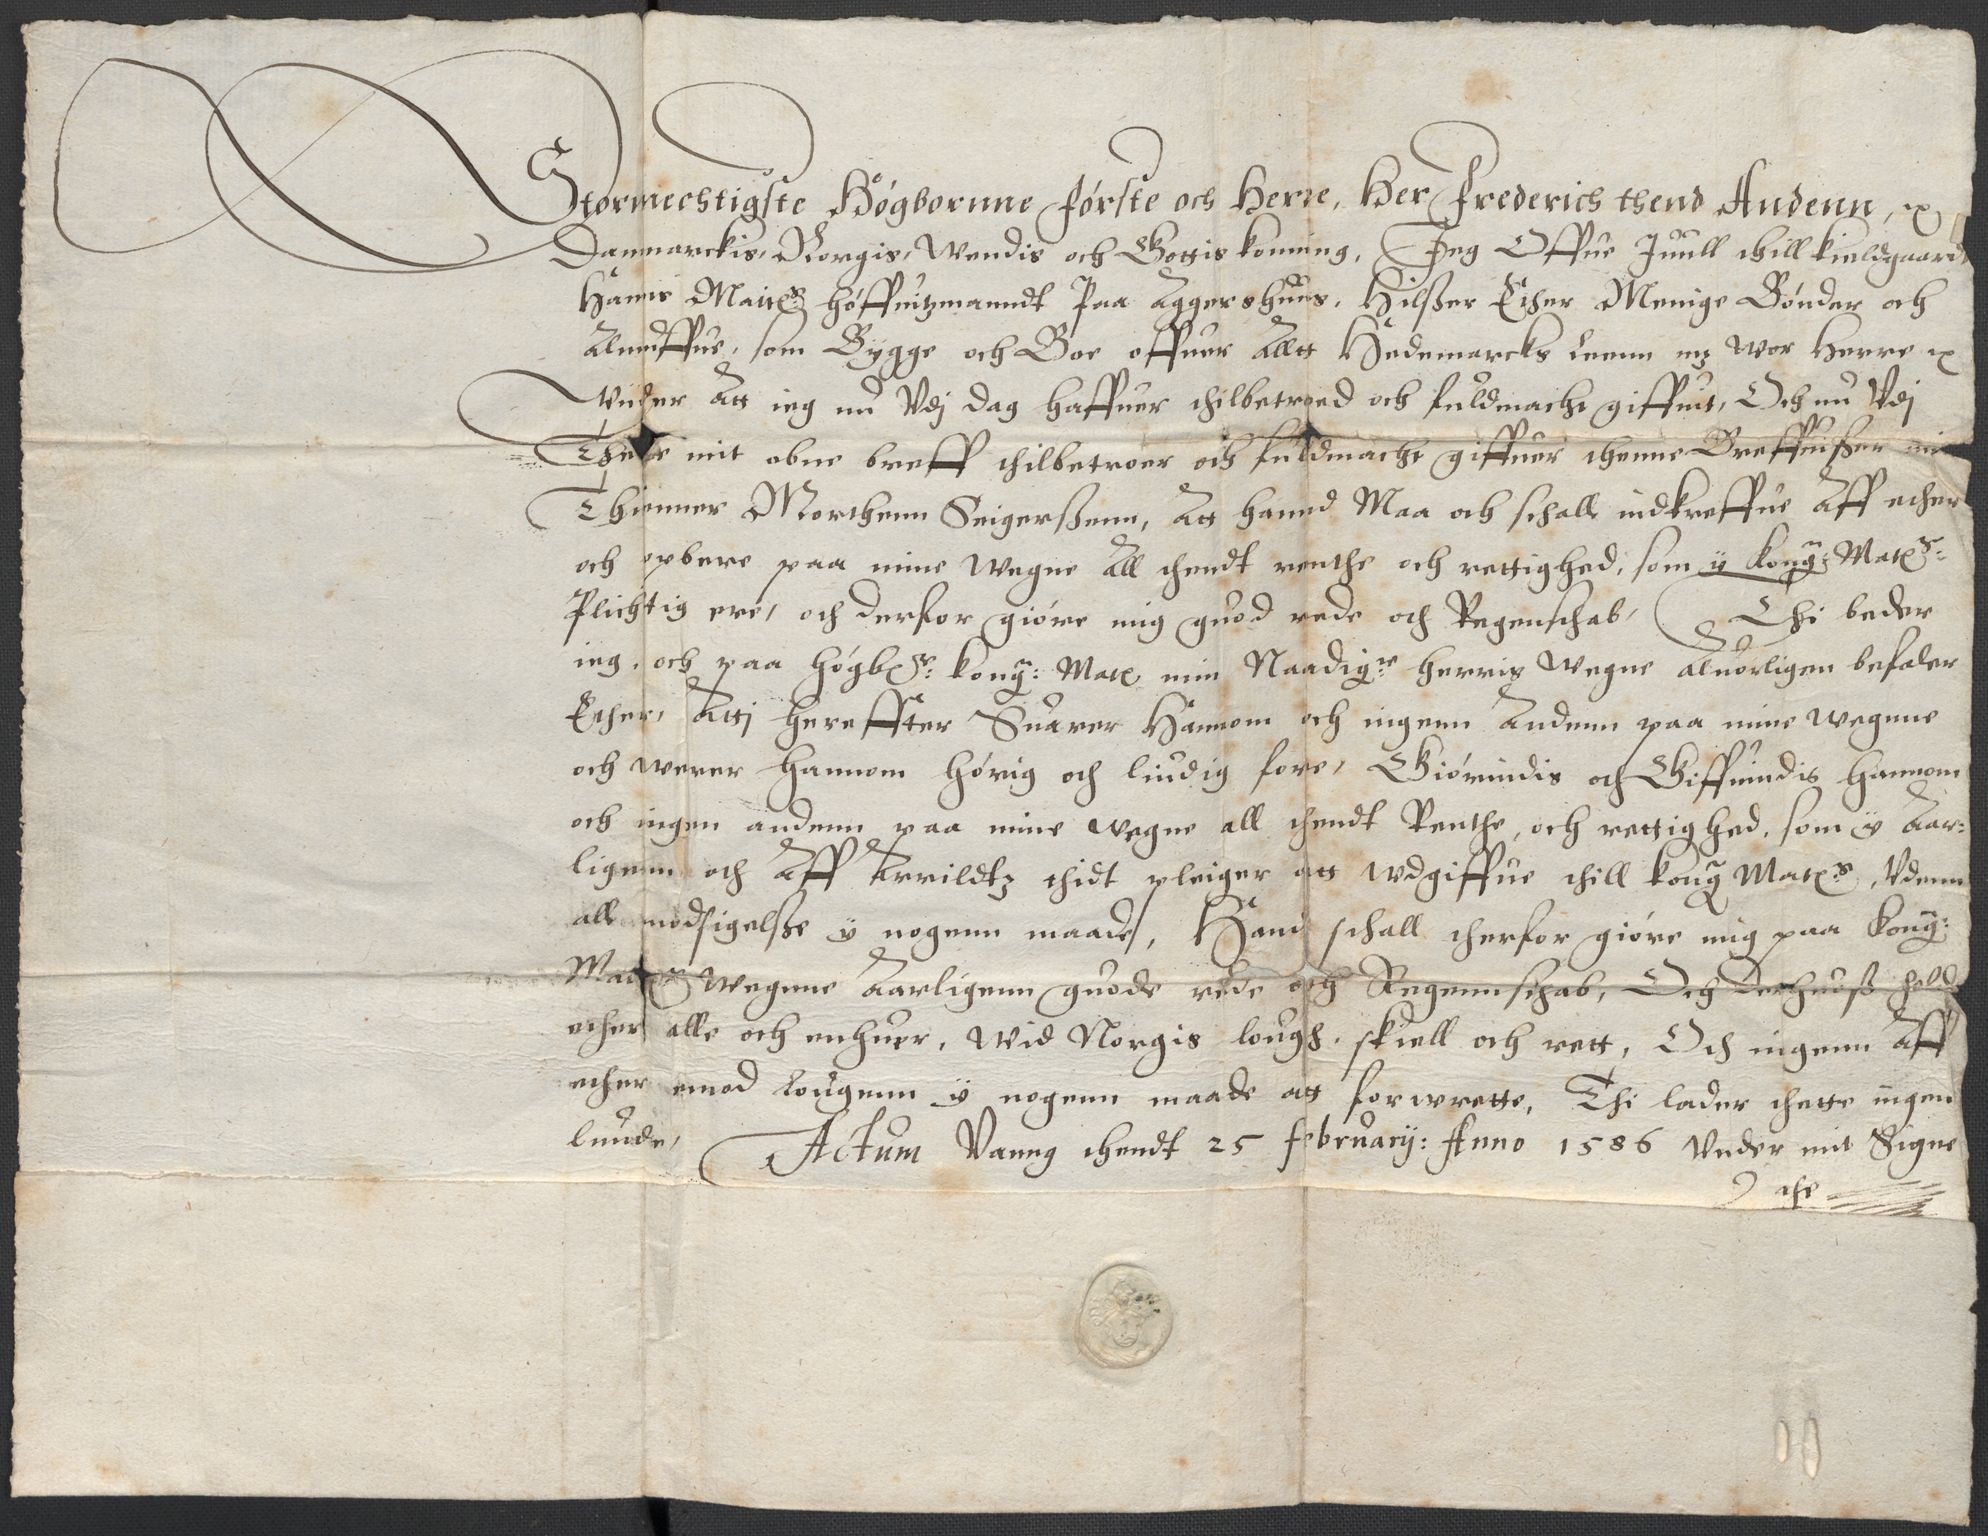 Stormechtigste Høgbornne første och Herre, Her Frederich thend Andenn, ꝛc
Danmarckis, Norgis, Wendis och Gottis konning, Jeg Offue Juull thill kieldgaard
Hanns Maitts høffuitzmanndt Paa Aggershuus, Hilsser Ether Menige Bønder och
Almuffue, som Bygge och Boe offuer Alltt Hedemarcks Leenn mz wor Herre ꝛc
Wider Att ieg nu Vdj dag haffuer thilbetroed och fuldmacht giffuit, Och nu Vdj
Thette mit obne breff thilbetroer och fuldmacht giffuer thenne Breffuisser min
Thienner Morthenn Seigerssenn, Att hannd Maa och schall indkreffue Aff ether
och opbere paa mine wegne All thendt renthe och rettighed, som y Kong: Mats:
Plichtig ere, och derfor giøre mig guod rede och Regenschab, Thi beder
ieg, och paa høgbs: kong: Mat min Naadigste herris wegne aluorligen befaler
Ether, Attj hereffter Suarer Hannom och ingenn Andenn paa mine wegnne
och werer hannom hørig och liudig fore, Giørindis och Giffuindis hannom
och ingen andenn paa mine wegne all thendt Renthe, och rettighed, som y Aar-
ligenn och Aff Arrildtz thidt pleiger att wdgiffue thill kong Mats, Vdenn
all modsigelsse y nogenn maade, Hand schall therfor giøre mig paa kong:
Matts wegnne Aarligenn guode rede och Regennschab, Och derhuoss hold
ether alle och enhuer, wid Norgis lough, skiell och rett, Och ingenn Aff
ether emod Lougenn y nogenn maade att forwrette, Thi lader thette ingen
lunde, Actum Vanng thendt 25 februarij: Anno 1586 Vnder mit Signe
the